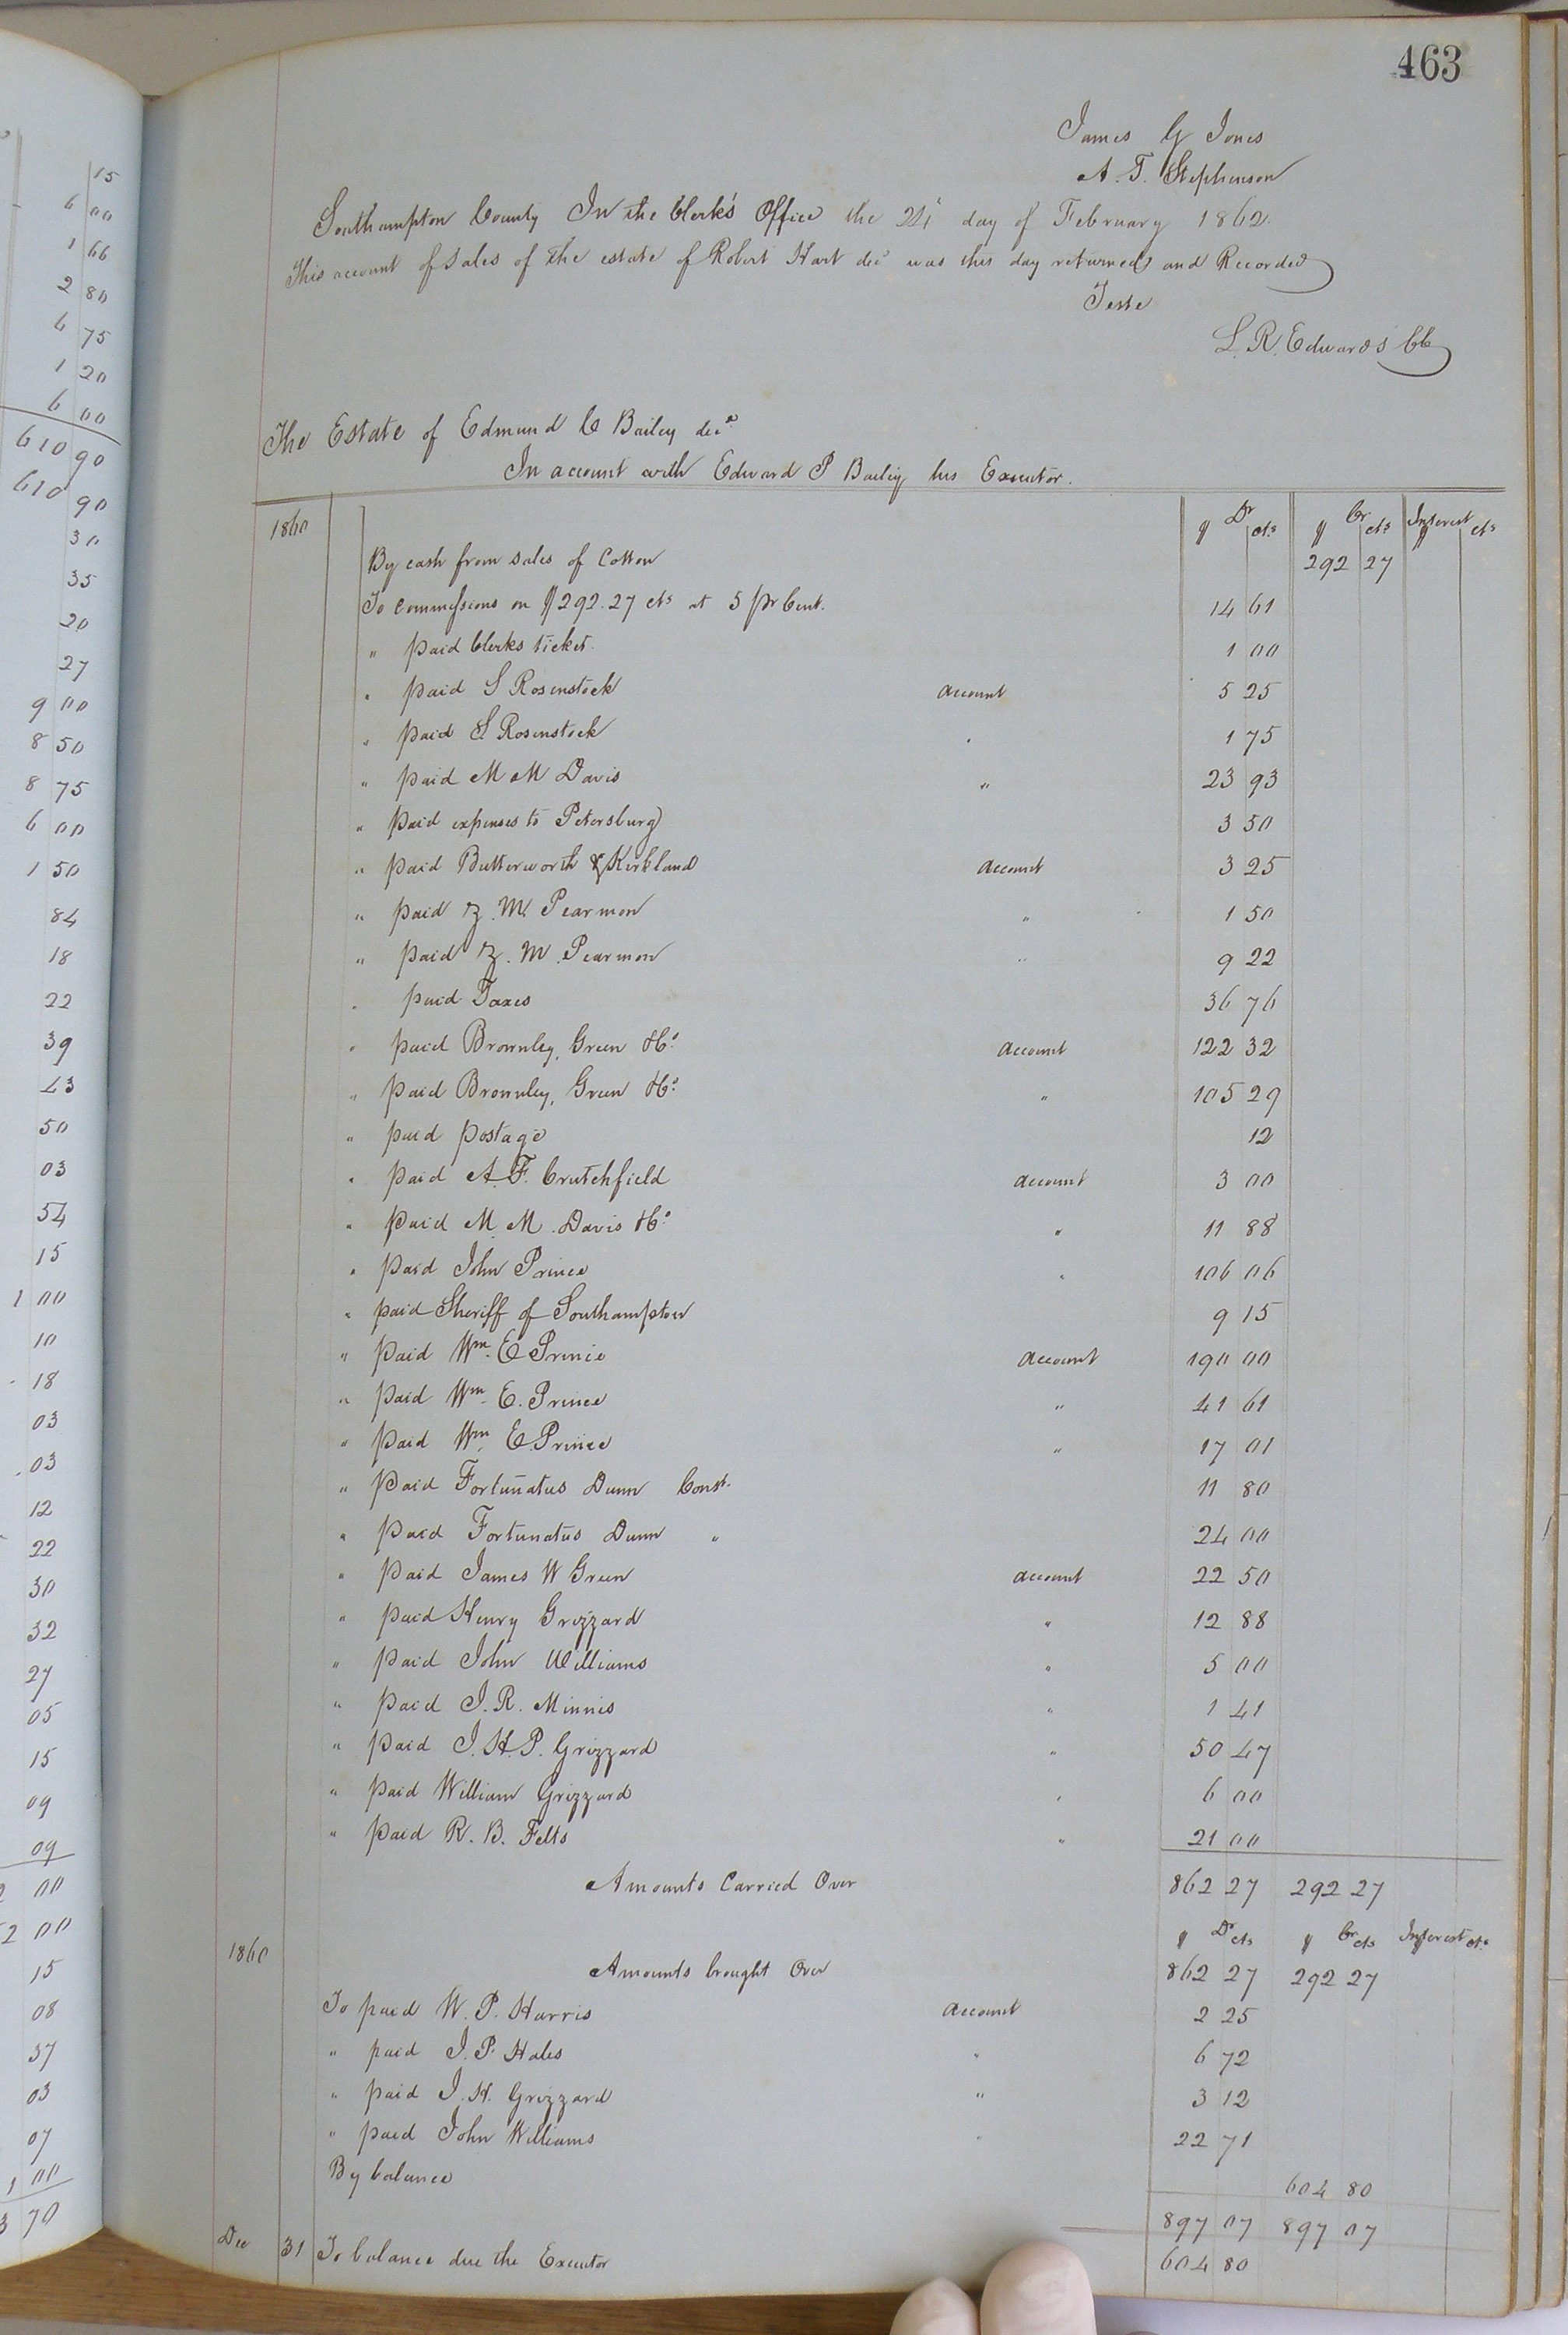 463
James G Jones
A. T. Stephenson
Southampton County In the Clerk's Office the 24 day of February 1862.
This account of Sales of the estate of Robert Hart decd was this day returned and Recorded
Teste
L. R. Edwards CC
The Estate of Edmund C Bailey decd
In account with Edward P Bailey his Executor.
1860 $ Dr cts $ Cr cts Interest $ cts
By cash from sales of Cotton 292 27
To Commissions on $292.27 cts at 5 pr Cent. 14 61
" paid Clerks ticket. 1 00
" paid S Rosenstock account 5 25
" paid S Rosenstock " 1 75
" paid M M Davis " 23 93
" paid expenses to Petersburg 3 50
" paid Butterworth & Kirkland account 3 25
" paid Z. M. Pearmon " 1 50
" paid Z. M. Pearmon " 9 22
" paid Taxes 36 76
" paid Brownley, Green &Co account 122 32
" paid Brownley, Green &Co " 105 29
" paid postage 12
" paid A. F. Crutchfield account 3 00
" paid M. M. Davis &Co " 11 88
" paid John Prince " 106 06
" paid Sheriff of Southampton 9 15
" paid Wm. E Prince account 190 00
" paid Wm. E. Prince " 41 61
" paid Wm. E Prince " 17 01
" paid Fortunatus Dunn Const. 11 80
" paid Fortunatus Dunn " 24 00
" paid James W Green account 22 50
" paid Henry Grizzard " 12 88
" paid John Williams " 5 00
" paid J. R. Minnis " 1 41
" paid J. H. P. Grizzard " 50 47
" paid William Grizzard " 6 00
" paid R. B. Felts " 21 00
Amounts Carried Over 862 27 292 27
$ Dr cts $ Cr cts Interest cts
1860 Amounts brought Over 862 27 292 27
To paid W. P. Harris account 2 25
" paid J. P. Hales " 6 72
" paid J. H. Grizzard " 3 12
" paid John Williams " 22 71
By balance 604 80
897 07 897 07
Dec 31 To balance due the Executor 604 80
15
6 00
1 66
2 80
6 75
1 20
6 00
610 90
610 90
30
35
20
27
9 00
8 50
8 75
6 00
1 50
84
18
22
39
43
50
03
54
15
1 00
10
18
03
03
12
22
30
32
27
05
15
09
09
00
2 00
15
08
37
03
07
00
3 70